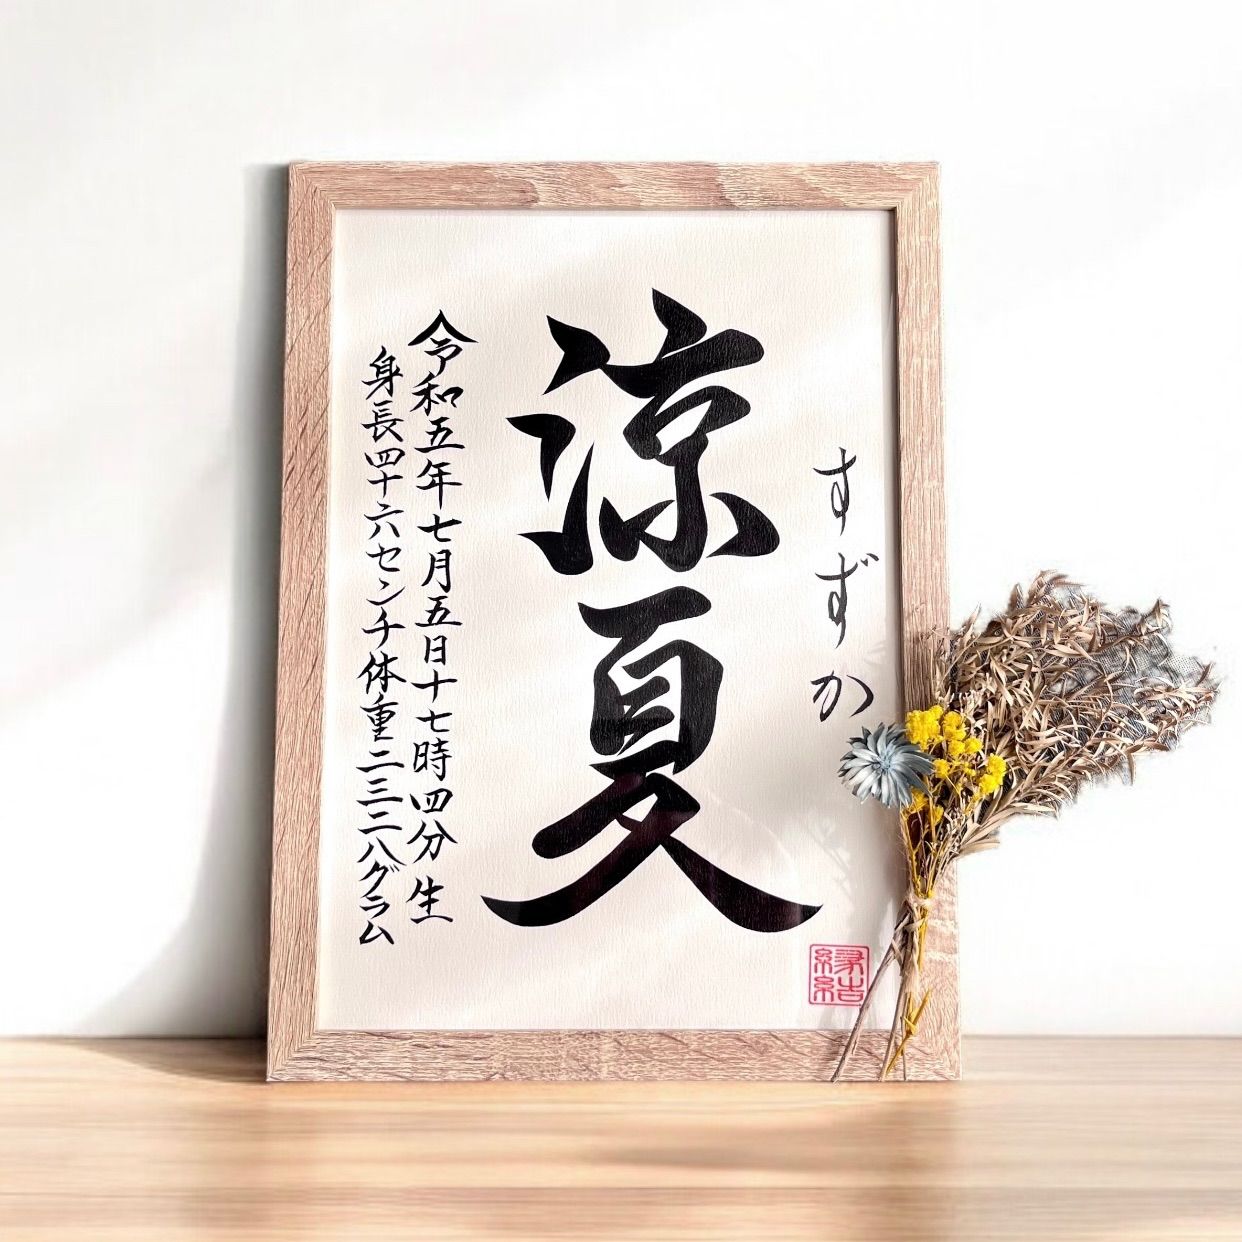 すずか
涼夏
令和五年七月五日十七時四分生
身長四十六センチ体重二三二八グラム
縁結